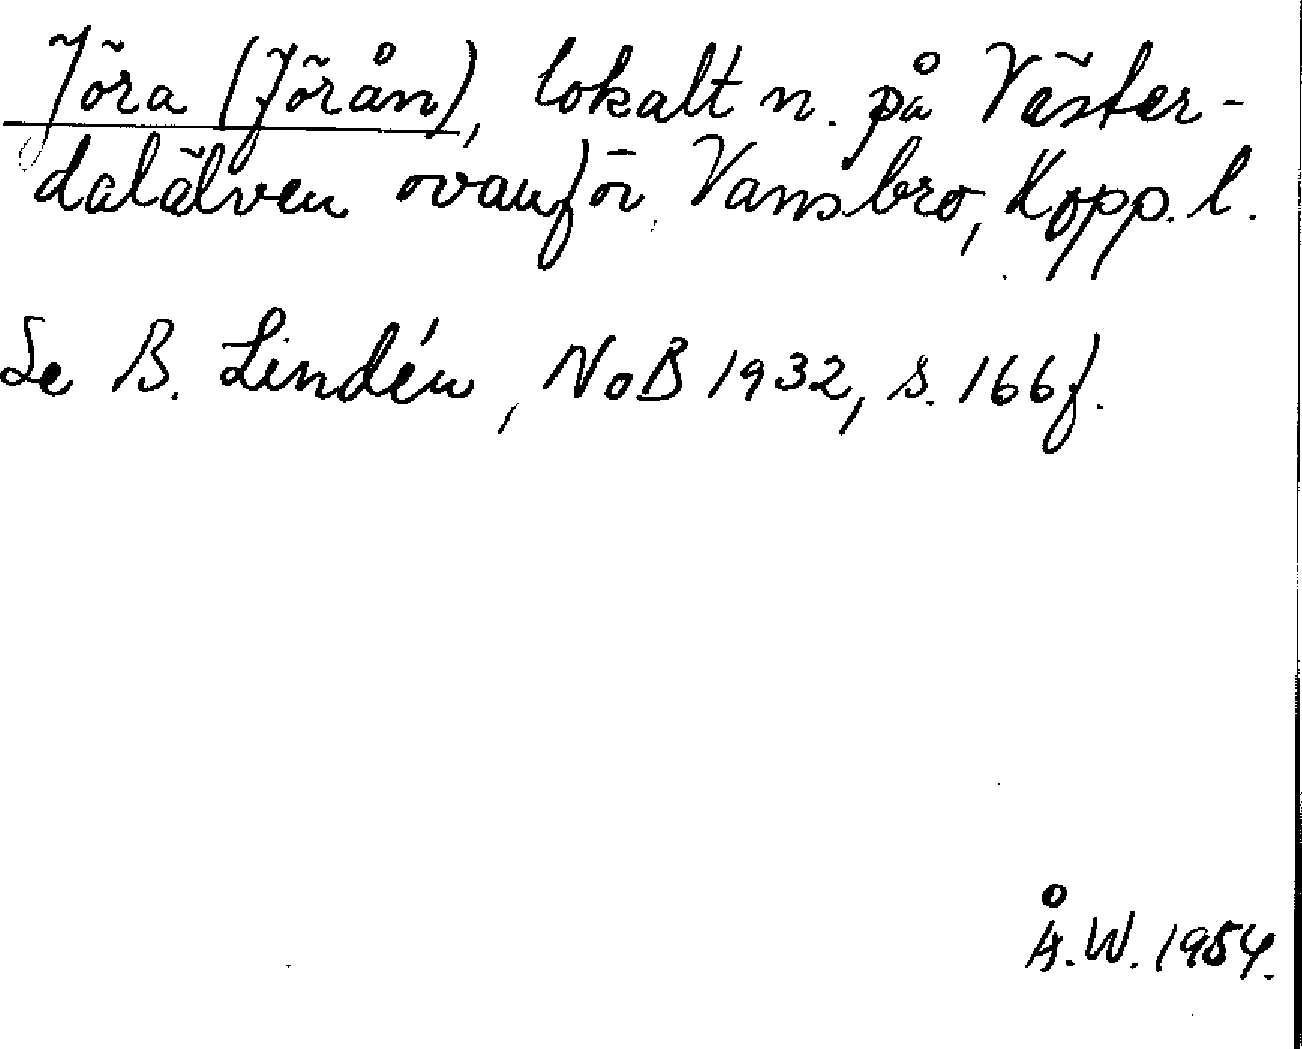 Jöra (Jörån), lokalt n. på Väster-
dalälven ovanför Vansbro, Kopp. l.
Se B. Lindén, NoB 1932, s. 166 f.
Å.W. 1954.